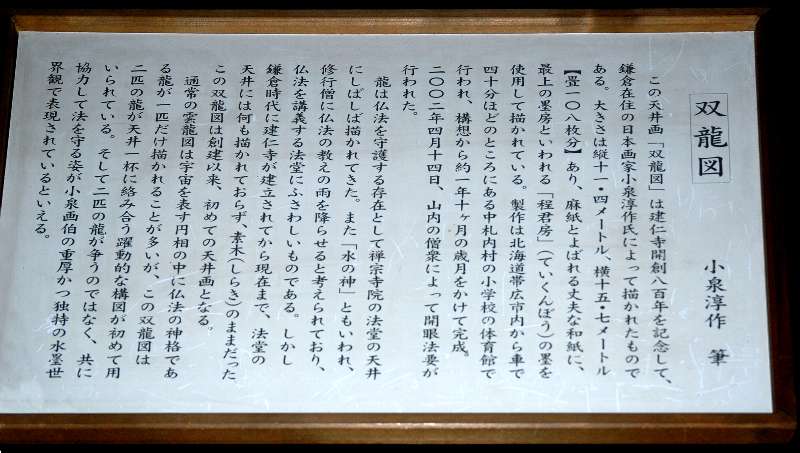 双龍図
小泉淳作　筆
この天井画「双龍図」は建仁寺開創八百年を記念して、
鎌倉在住の日本画家小泉淳作氏によって描かれたもので
ある。大きさは縦十一・四メートル、横十五・七メートル
【畳一〇八枚分】あり、麻紙とよばれる丈夫な和紙に、
最上の墨房といわれる「程君房」（ていくんぼう）の墨を
使用して描かれている。製作は北海道帯広市内から車で
四十分ほどのところにある中札内村の小学校の体育館で
行われ、構想から約一年十ヶ月の歳月をかけて完成。
二〇〇二年四月十四日、山内の僧衆によって開眼法要が
行われた。
龍は仏法を守護する存在として禅宗寺院の法堂の天井
にしばしば描かれてきた。また「水の神」ともいわれ、
修行僧に仏法の教えの雨を降らせると考えられており、
仏法を講義する法堂にふさわしいものである。しかし
鎌倉時代に建仁寺が建立されてから現在まで、法堂の
天井には何も描かれておらず、素木（しらき）のままだった
この双龍図は創建以来、初めての天井画となる。
通常の雲龍図は宇宙を表す円相の中に仏法の神格であ
る龍が一匹だけ描かれることが多いが、この双龍図は
二匹の龍が天井一杯に絡み合う躍動的な構図が初めて用
いられている。そして二匹の龍が争うのではなく、共に
協力して法を守る姿が小泉画伯の重厚かつ独特の水墨世
界観で表現されているといえる。